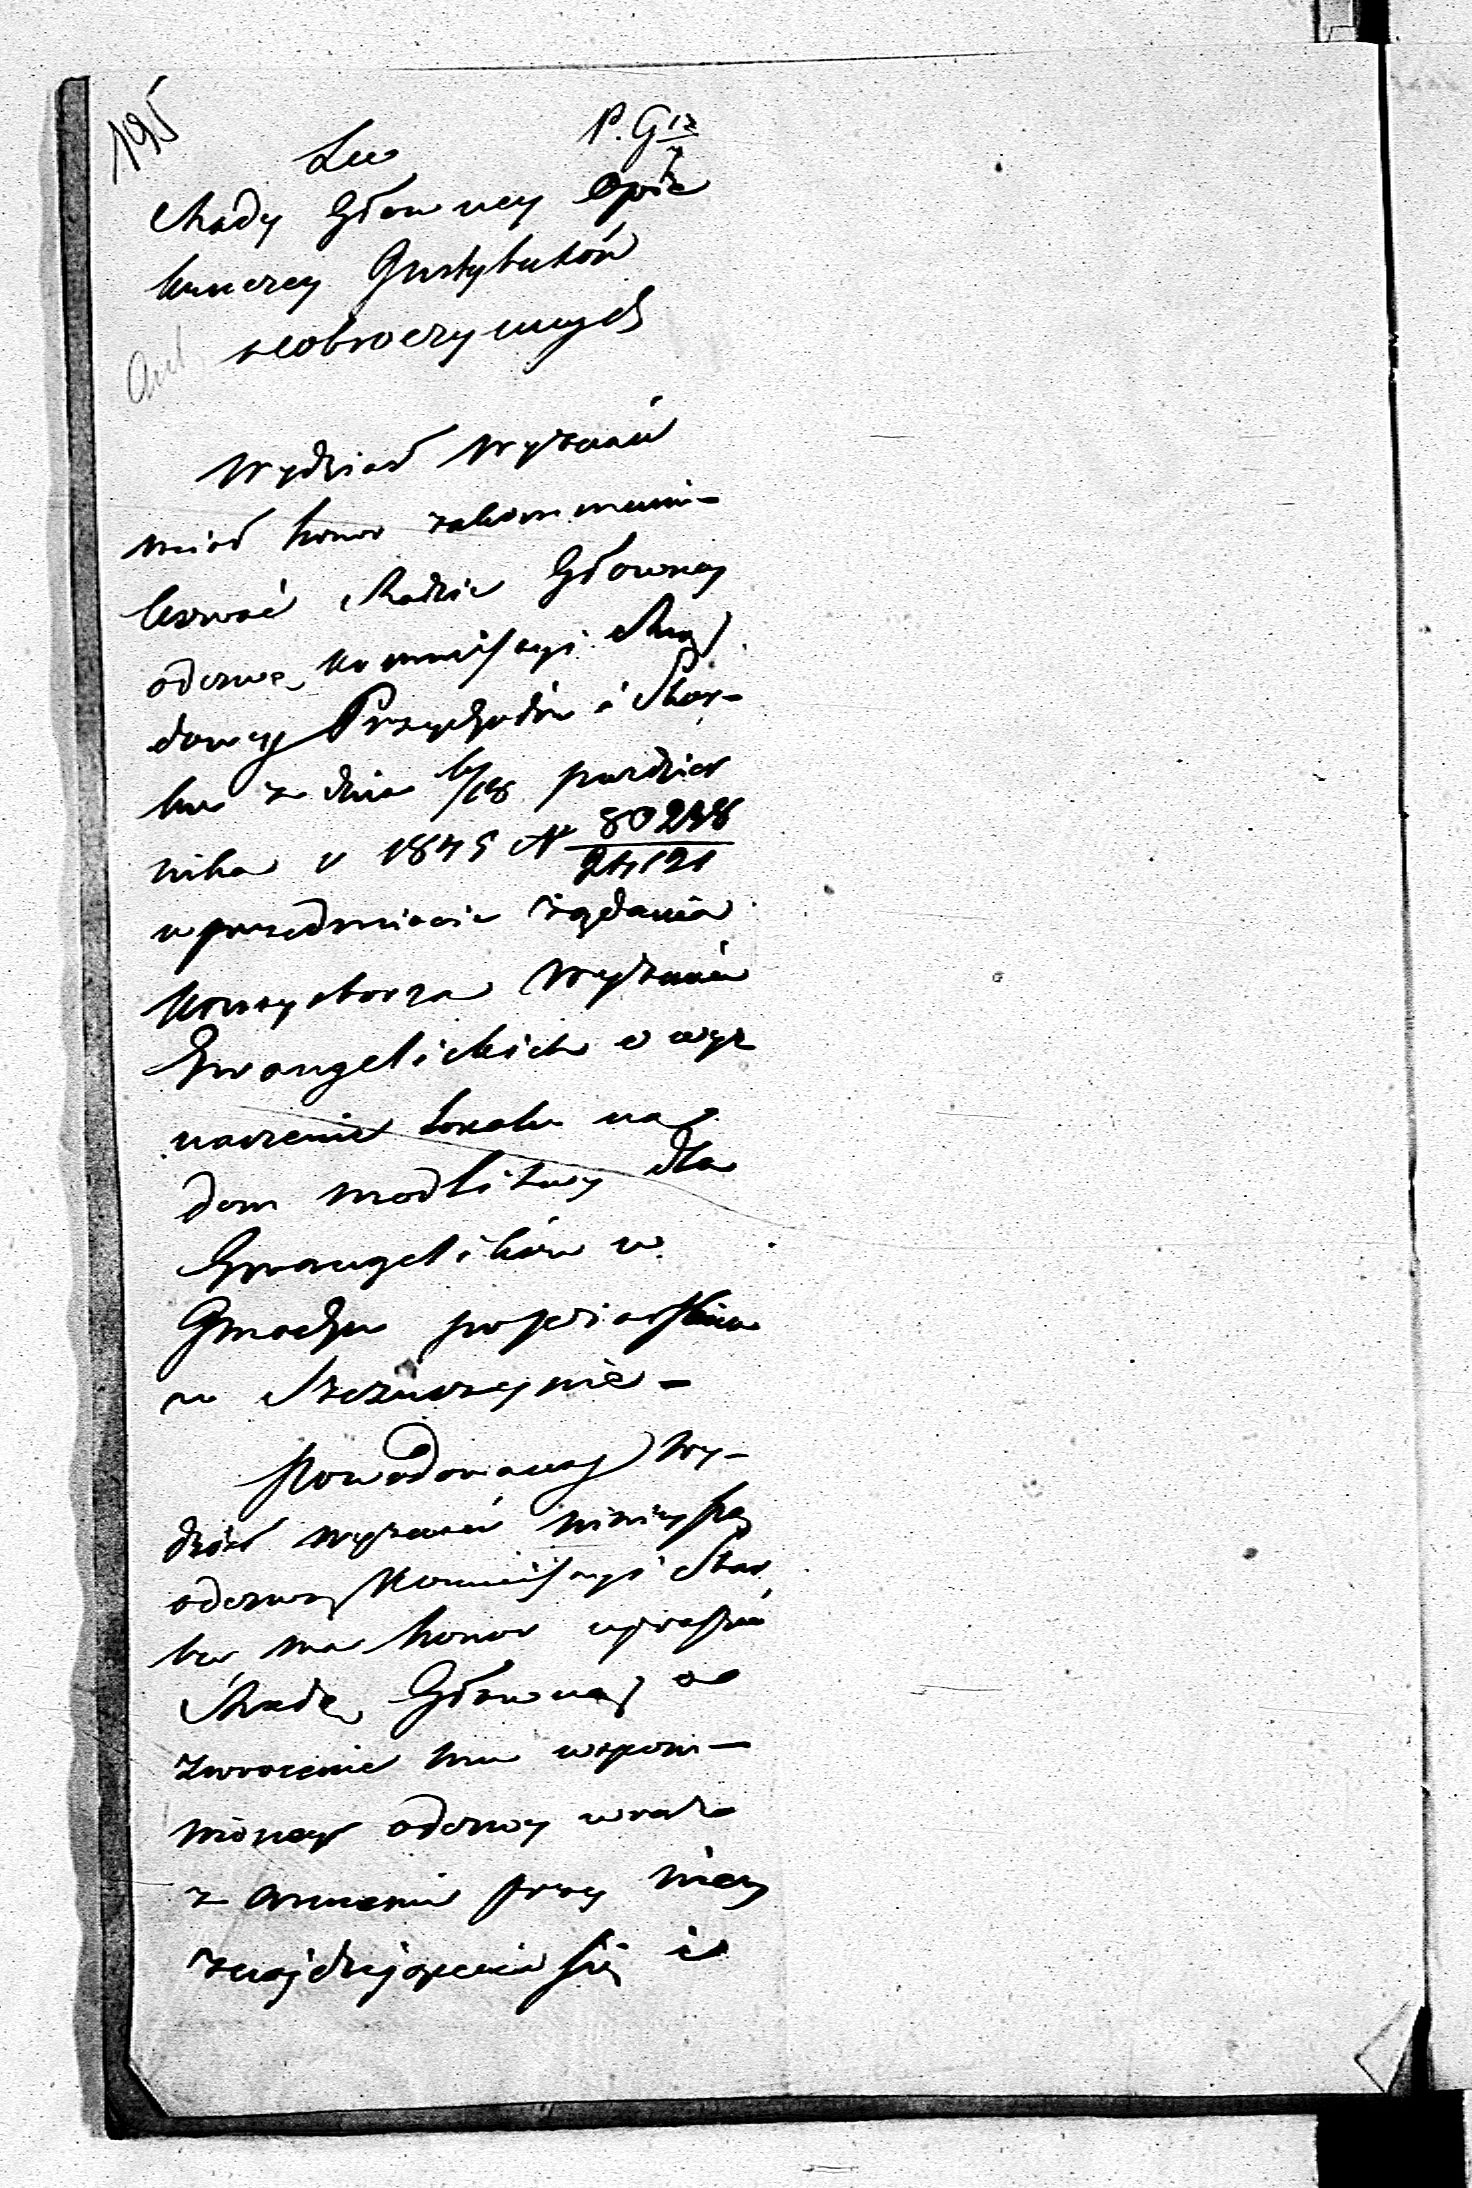 195
P. G. 12/7
Do
Rady Głowney Opie
kunczey Instytutów
dobroczynnych
Wydział Wyznań
miał honor zakommuni-
kować Radzie Głowney
odezwę Kommissyi Rzą
dowey Przychodów i Skar-
bu z dnia 6/18 paździer
nika r 1845 N 80248/24121
w przedmiocie żądania
Konsystorza Wyznań
Ewangelickich o wyz
naczenie lokalu na
dom modlitwy dla
Ewangelików w
Gmachu popijarskim
w Szczuczynie -
Powodowany Wy-
dział wyznań niniejszą
odezwą Kommissyi Skar
bu ma honor uprosić
Radę Głowną o
zwrocenie mu wspom-
nioney odezwy wraz
z annexami przy niey
znajdującemi się i